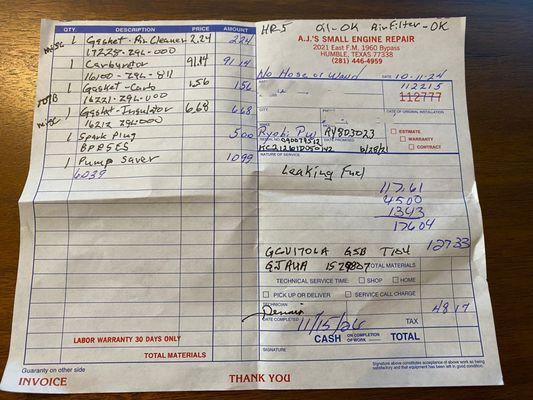 QTY. DESCRIPTION PRICE AMOUNT
misc 1 Gasket-Air Cleaner 2.24 2.24
17228-Z9L-000
1 Carburator 91.14 91.14
16100-Z9L-811
1 Gasket-Carb 1.56 1.56
16221-Z9L-000
misc 1 Gasket-Insulator 6.68 6.68
16212 Z9L-000
1 Spark Plug 5.00
BPR5ES
1 Pump Saver 10.99
6039
LABOR WARRANTY 30 DAYS ONLY
TOTAL MATERIALS
Guaranty on other side
INVOICE
THANK YOU
HR-5 Oil-OK Air Filter-OK
A.J.'S SMALL ENGINE REPAIR
2021 East F.M. 1960 Bypass
HUMBLE, TEXAS 77338
(281) 446-4959
No Hose or Wand
10-11-24
112215
112777
DATE OF ORIGINAL INSTALLATION
CITY
Ryobi PW RY803023
ESTIMATE
WARRANTY
CONTRACT
6/28/21
NATURE OF SERVICE
Leaking Fuel
117.61
4500
1343
17604
GCV170LA GSB T104
12733
GJAHA
TOTAL MATERIALS
TECHNICAL SERVICE TIME: SHOP HOME
PICK UP OR DELIVER SERVICE CALL CHARGE
TECHNICIAN
Dennis
48 17
DATE COMPLETED
11/15/24
TAX
CASH ON COMPLETION OF WORK TOTAL
SIGNATURE
Signature above constitutes acceptance of above work as being
satisfactory and that equipment has been left in good condition.